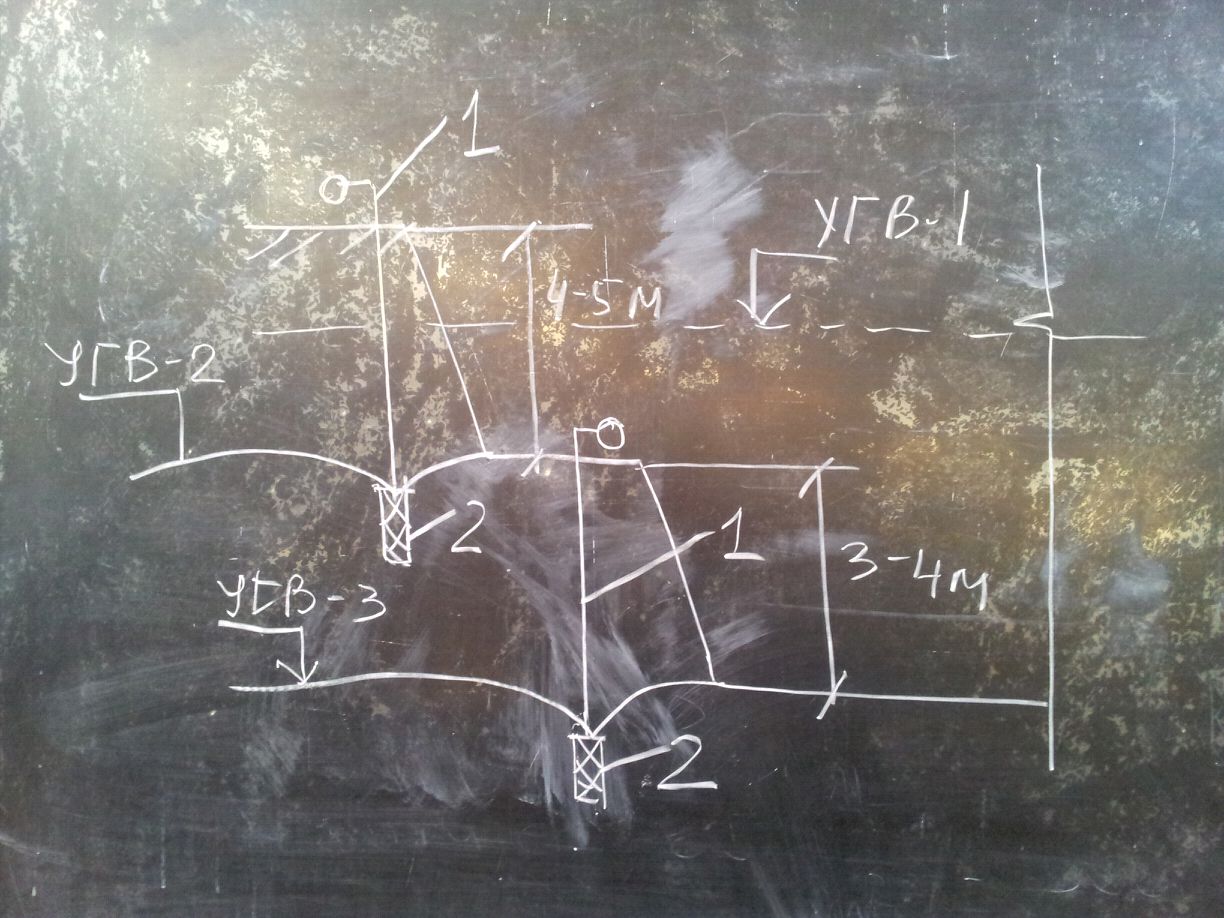 1
УГВ-1
4-5 м
УГВ-2
2
1
3-4м
УГВ-3
2